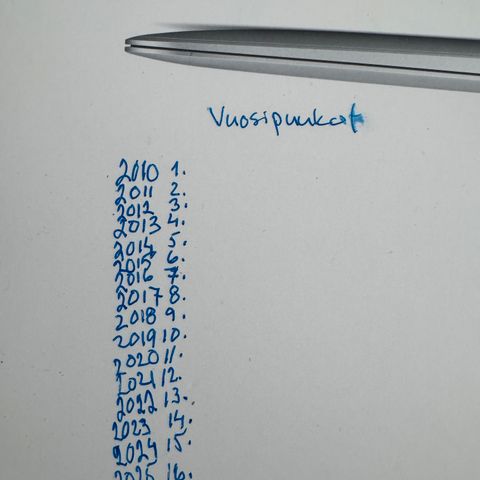 Vuosipuukat
2010 1.
2011 2.
2012 3.
2013 4.
2014 5.
2015 6.
2016 7.
2017 8.
2018 9.
2019 10.
2020 11.
2021 12.
2022 13.
2023 14.
2024 15.
2025 16.